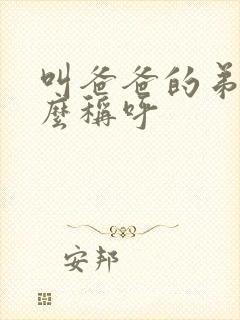 叫爸爸的弟
麼稱呼
安邦